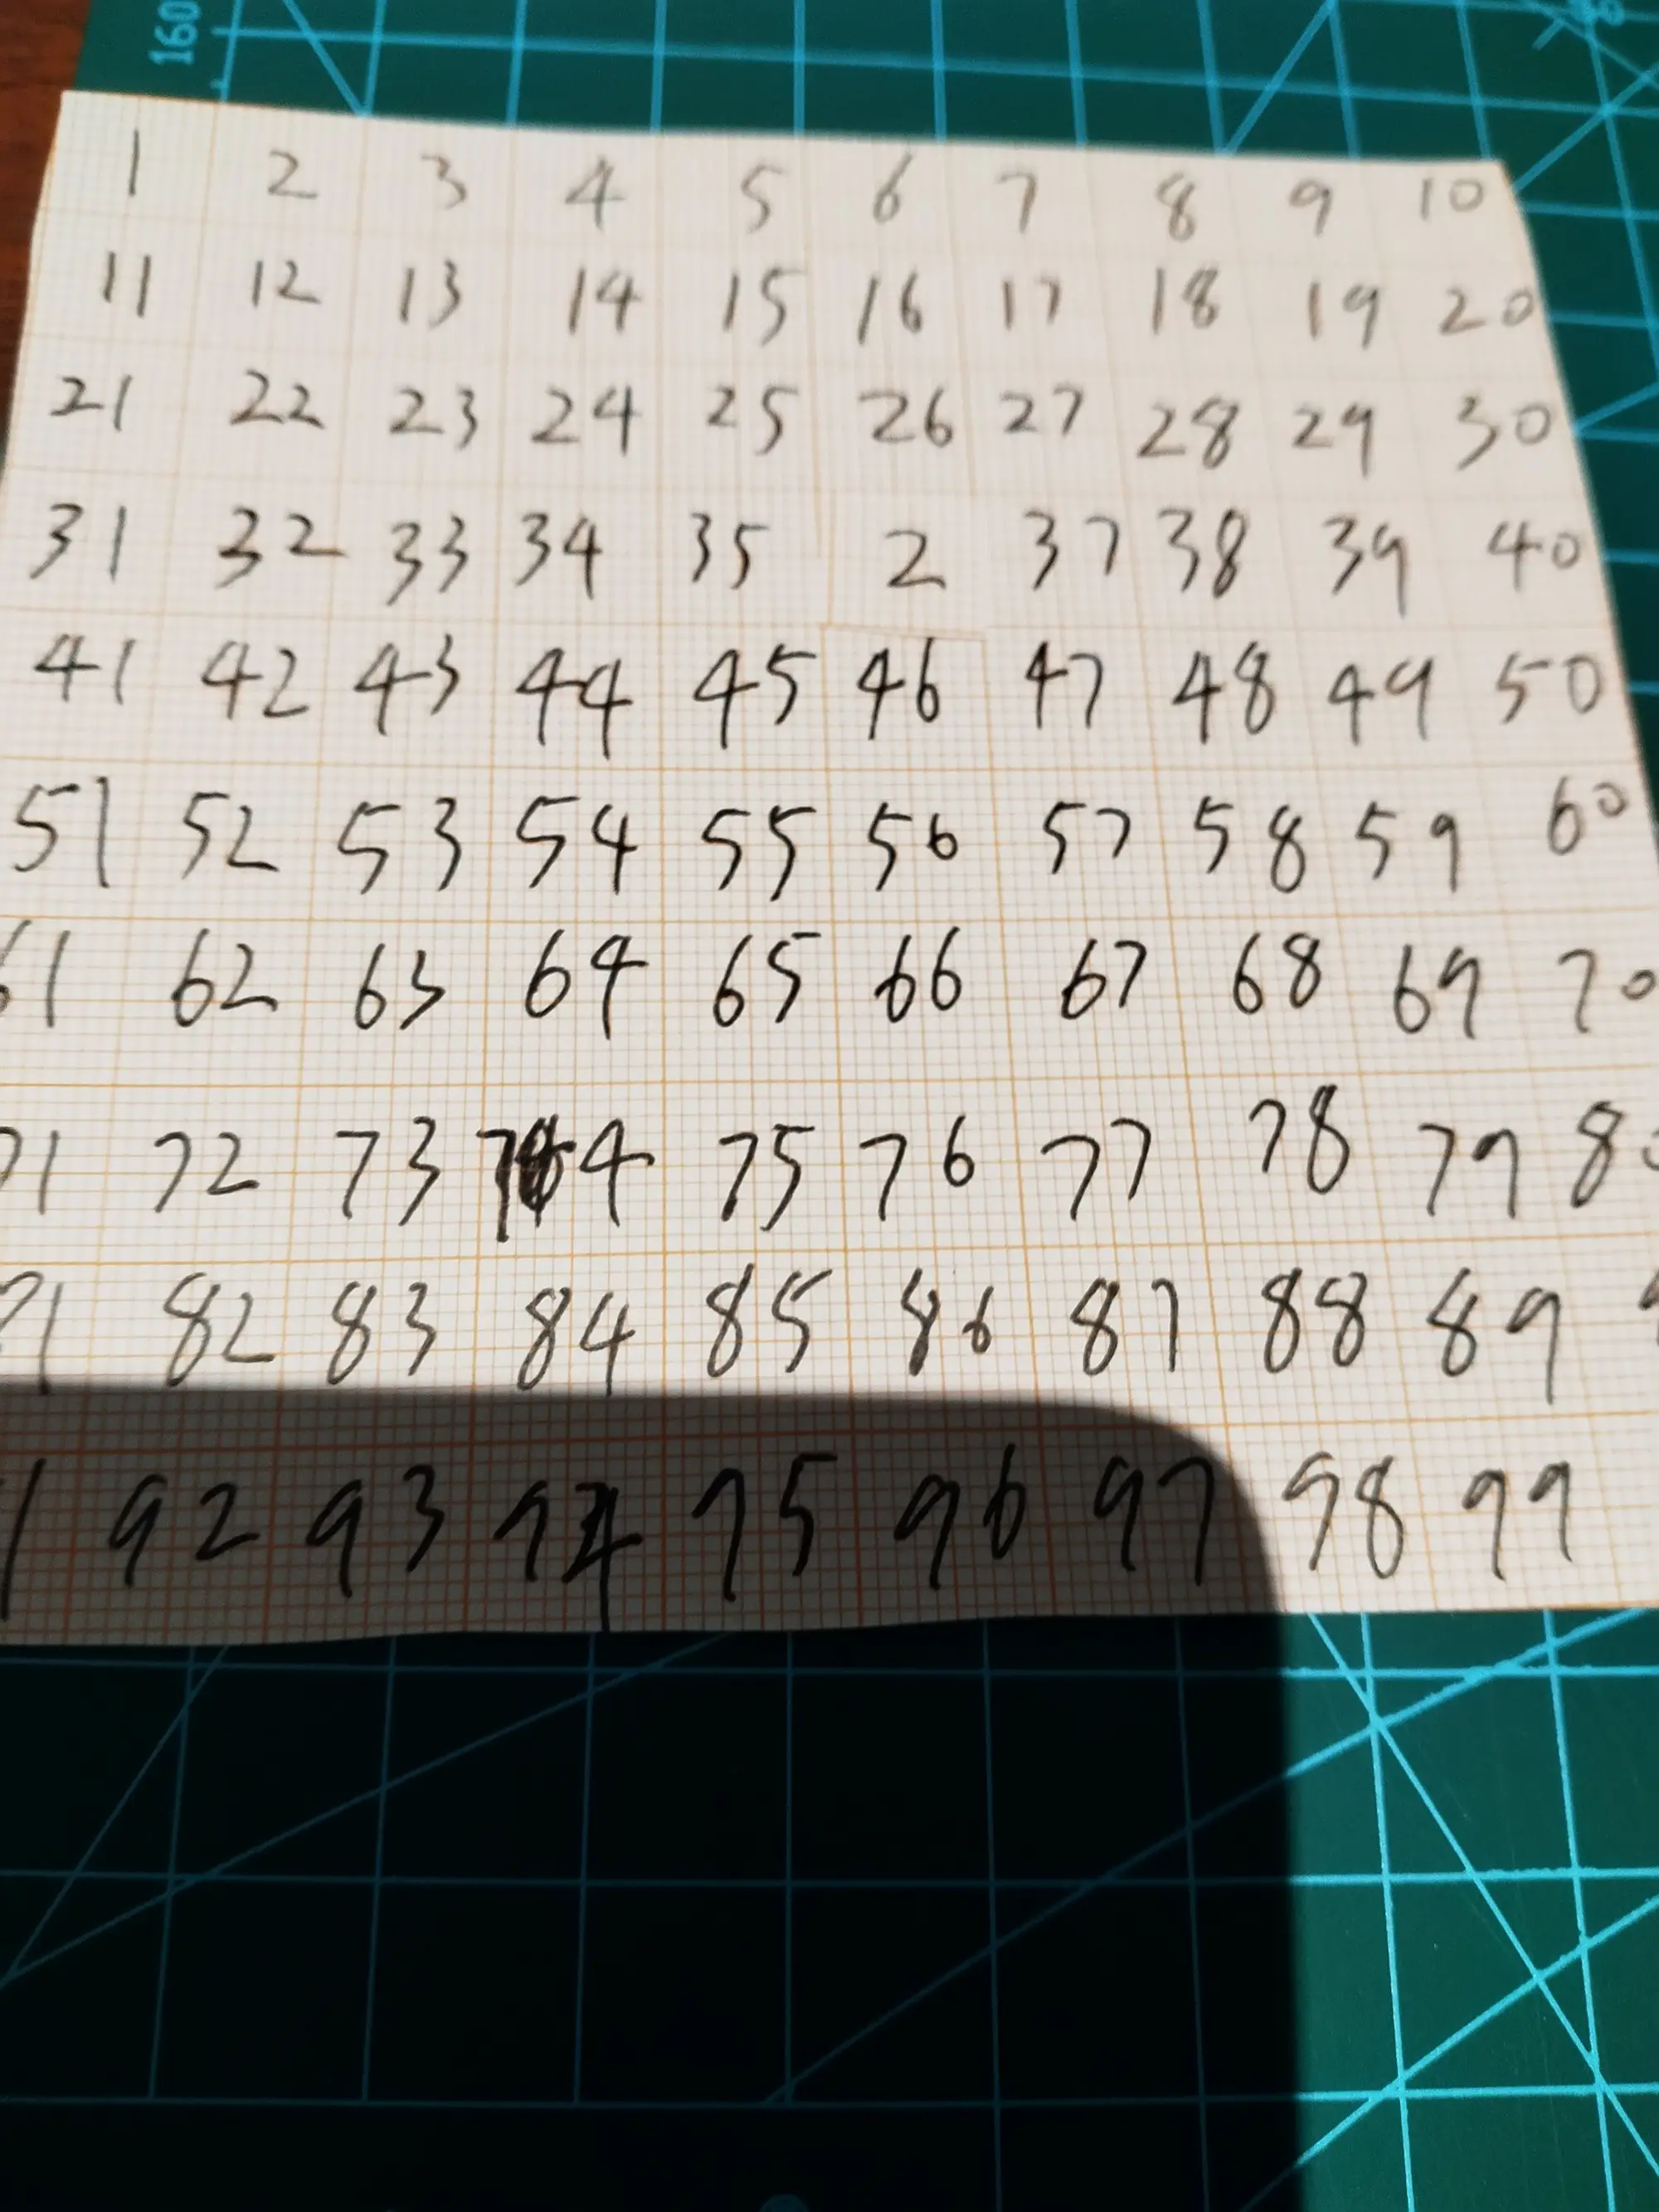 160
1 2 3 4 5 6 7 8 9 10
11 12 13 14 15 16 17 18 19 20
21 22 23 24 25 26 27 28 29 30
31 32 33 34 35 2 37 38 39 40
41 42 43 44 45 46 47 48 49 50
51 52 53 54 55 56 57 58 59 60
61 62 63 64 65 66 67 68 69 70
71 72 73 74 75 76 77 78 79 80
82 83 84 85 86 87 88 89
92 93 94 95 96 97 98 99